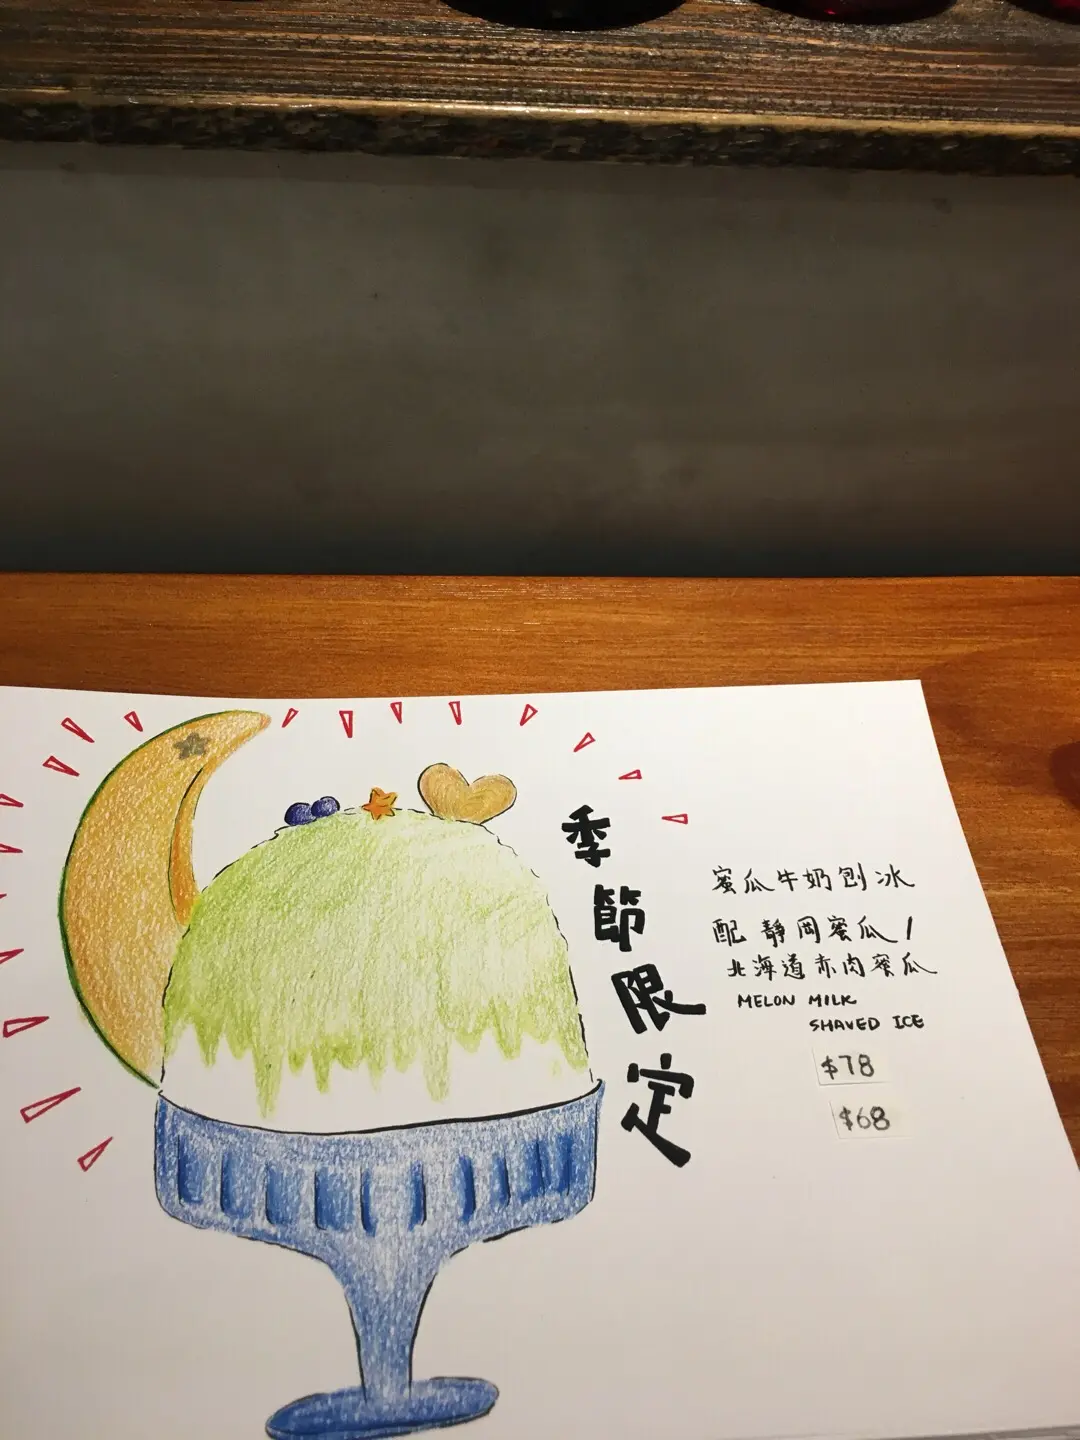 季節限定
蜜瓜牛奶刨冰
配 靜岡蜜瓜/
北海道赤肉蜜瓜
MELON MILK
SHAVED ICE
$78
$68